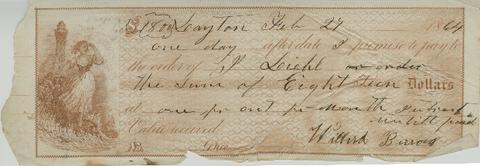 $1800 Dayton Feb 27 1864
One day after date I promise to pay to
the order of Leight or order
the sum of Eighteen Dollars
at one pr cent pr Month
Value received until paid
No. Due Willard Burrows